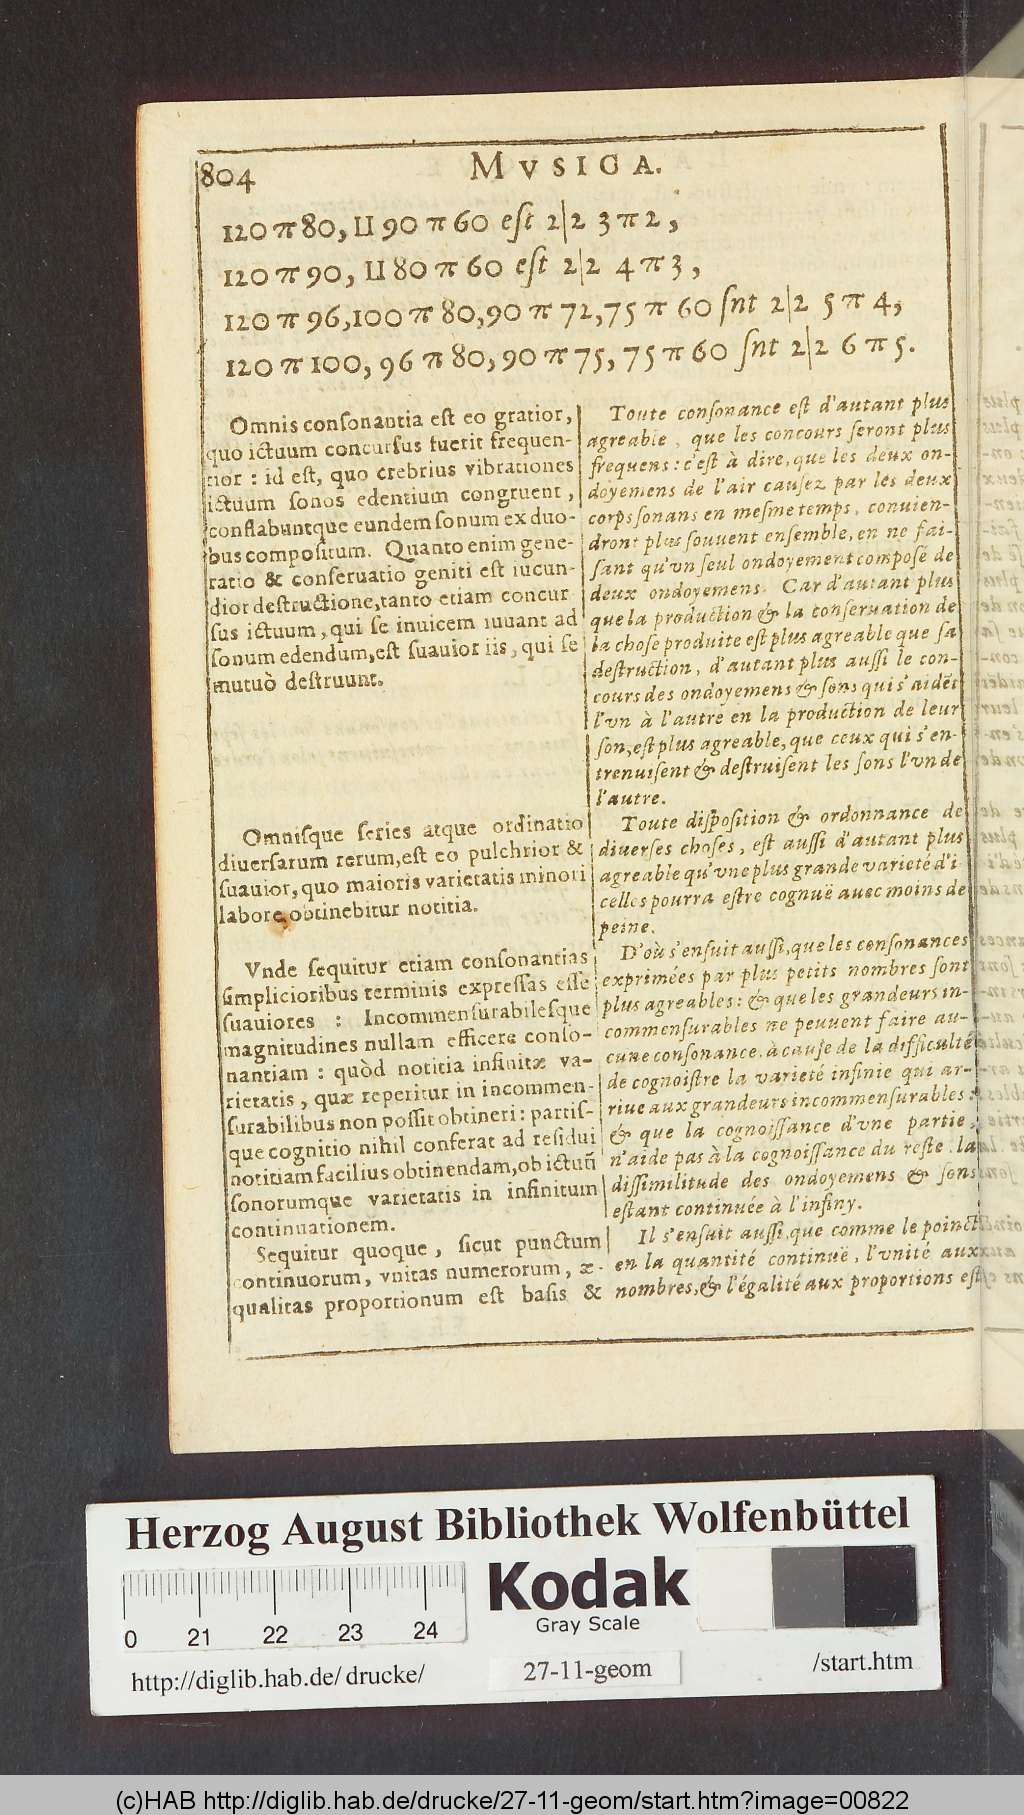 804 MVSICA.
120 π 80, ⊔ 90 π 60 eſt 2|2 3 π 2,
120 π 90, ⊔ 80 π 60 eſt 2|2 4 π 3,
120 π 96, 100 π 80, 90 π 72, 75 π 60 ſnt 2|2 5 π 4,
120 π 100, 96 π 80, 90 π 75, 75 π 60 ſnt 2|2 6 π 5.
Omnis conſonantia eſt eo gratior,
quo ictuum concurſus fuerit frequen-
tior : id eſt, quo crebrius vibrationes
ictuum ſonos edentium congruent,
conflabuntque eundem ſonum ex duo-
bus compoſitum. Quanto enim gene-
ratio & conſeruatio geniti eſt iucun-
dior deſtructione, tanto etiam concur
ſus ictuum, qui ſe inuicem iuuant ad
ſonum edendum, eſt ſuauior iis, qui ſe
mutuò deſtruunt.
Omniſque ſeries atque ordinatio
diuerſarum rerum, eſt eo pulchrior &
ſuauior, quo maioris varietatis minori
labore obtinebitur notitia.
Vnde ſequitur etiam conſonantias
ſimplicioribus terminis expreſſas eſſe
ſuauiores : Incommenſurabileſque
magnitudines nullam efficere conſo-
nantiam : quòd notitia infinitæ va-
rietatis, quæ reperitur in incommen-
ſurabilibus non poſſit obtineri : partiſ-
que cognitio nihil conferat ad reſidui
notitiam facilius obtinendam, ob ictuũ
ſonorumque varietatis in infinitum
continuationem.
Sequitur quoque, ſicut punctum
continuorum, vnitas numerorum, æ-
qualitas proportionum eſt baſis &
Toute conſonance eſt d'autant plus
agreable, que les concours ſeront plus
frequens : c'eſt à dire, que les deux on-
doyemens de l'air cauſez par les deux
corps ſonans en meſme temps, conuien-
dront plus ſouuent enſemble, en ne fai-
ſant qu'vn ſeul ondoyement compoſé de
deux ondoyemens. Car d'autant plus
que la production & la conſeruation de
la choſe produite eſt plus agreable que ſa
deſtruction, d'autant plus auſſi le con-
cours des ondoyemens & ſons qui s'aidẽt
l'vn à l'autre en la production de leur
ſon, eſt plus agreable, que ceux qui s'en-
trenuiſent & deſtruiſent les ſons l'vn de
l'autre.
Toute diſpoſition & ordonnance de
diuerſes choſes, eſt auſſi d'autant plus
agreable qu'vne plus grande varieté d'i
celles pourra eſtre cognuë auec moins de
peine.
D'où s'enſuit auſſi, que les conſonances
exprimées par plus petits nombres ſont
plus agreables : & que les grandeurs in-
commenſurables ne peuuent faire au-
cune conſonance, à cauſe de la difficulté
de cognoiſtre la varieté infinie qui ar-
riue aux grandeurs incommenſurables :
& que la cognoiſſance d'vne partie
n'aide pas à la cognoiſſance du reſte, la
diſſimilitude des ondoyemens & ſons
eſtant continuée à l'infiny.
Il s'enſuit auſſi, que comme le poinct
en la quantité continuë, l'vnité aux
nombres, & l'égalité aux proportions eſt
Herzog August Bibliothek Wolfenbüttel
Kodak
Gray Scale
0 21 22 23 24
http://diglib.hab.de/drucke/ 27-11-geom /start.htm
(c)HAB http://diglib.hab.de/drucke/27-11-geom/start.htm?image=00822